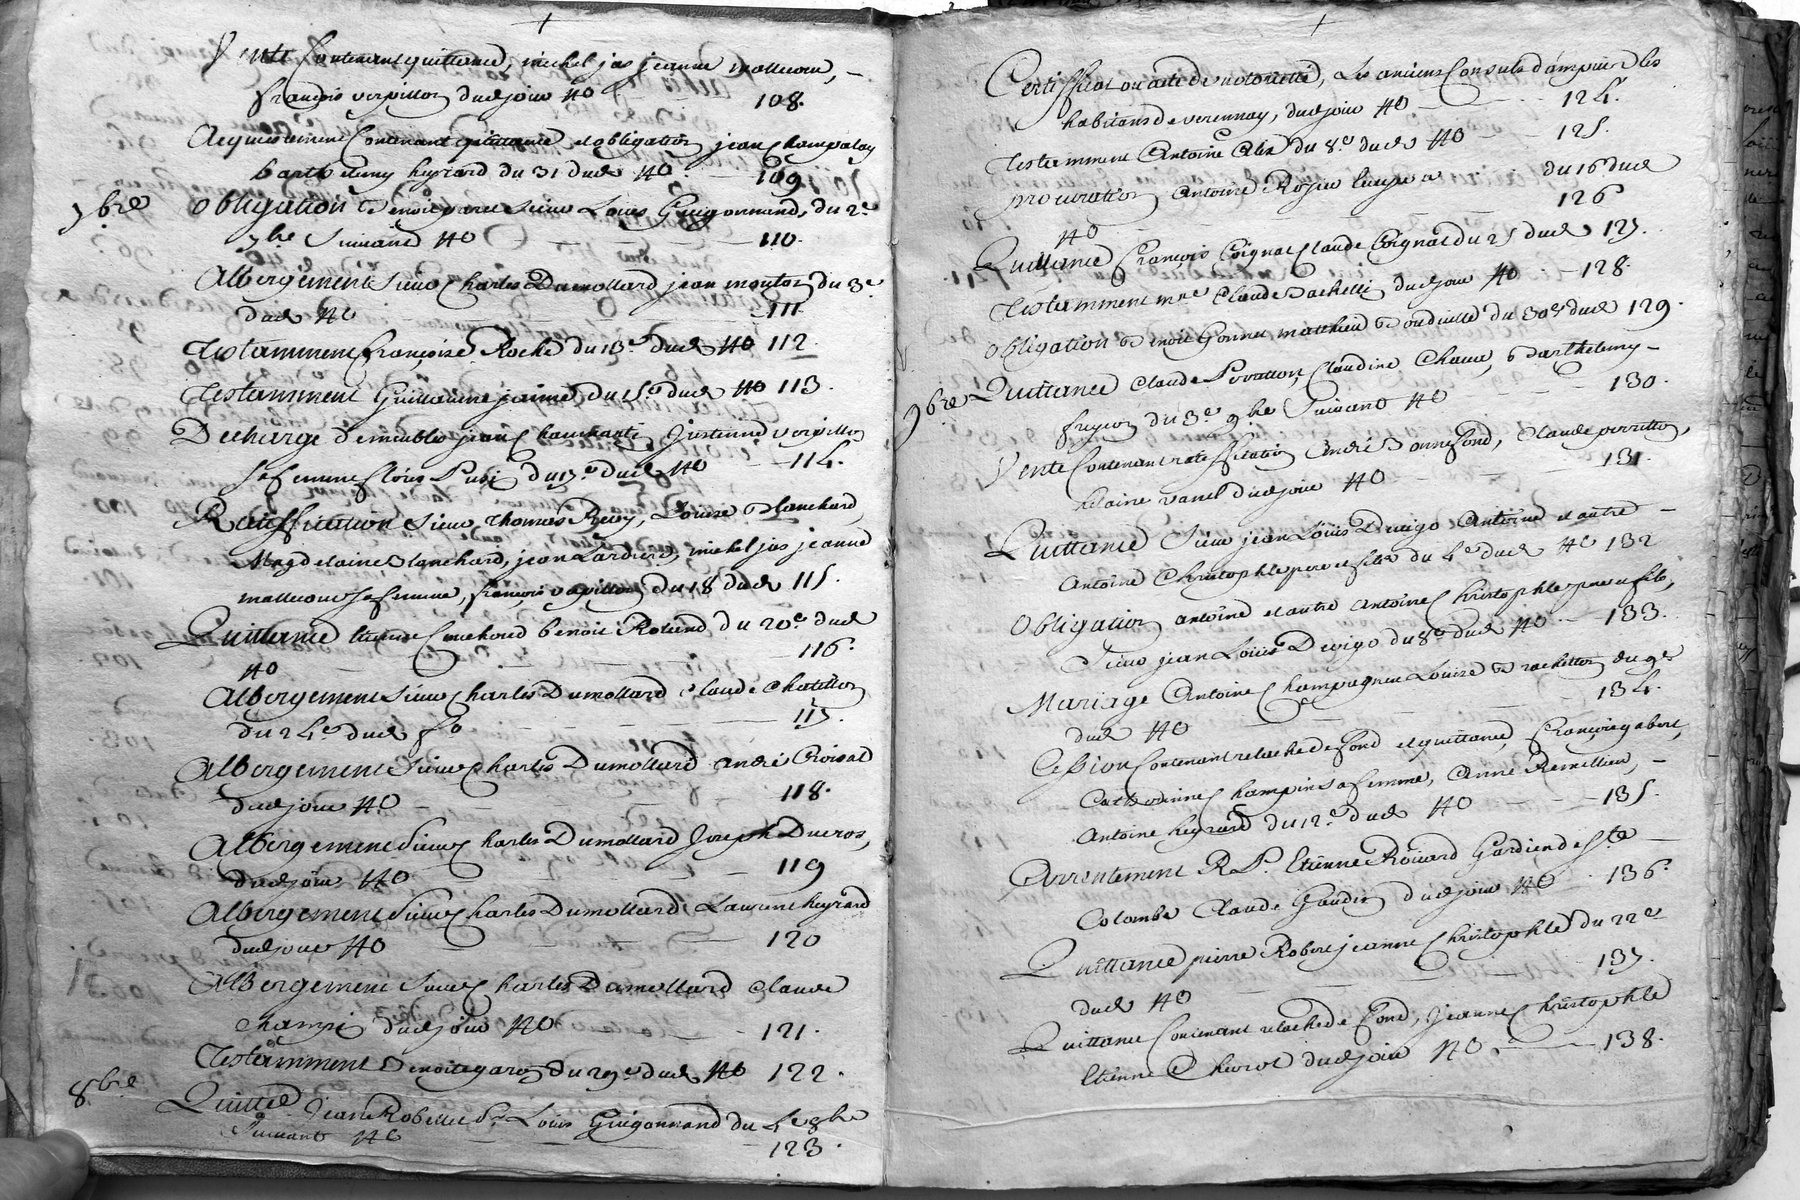 Vente Contenant quittance, michel jas jeanne mallucour, –
françois verpillon dud jour N° 108.
Acquiescement Contenant quittance et obligation jean Champalay
barthelemy heyrard du 31 dud N° 109
7bre
obligation Sieur Louis Guigonnand, du 2e
7bre Suivant N° 110.
Albergement Sieur Charles Dumollard jean mouton du 3e
dud N° 111.
Testamment françoise Roche du 13e dud N° 112
Testamment Guillaume jaime du 15e dud N° 113.
Decharge de meubles justinne verpillon
Sa femme du 17e dud N° 114.
Ratiffication Sieur Thomas Revy, Louise Blanchard,
Magdelaine Blanchard, jean Lardiere, michel jas jeanne
mallucour Sa femme, françois verpillon du 18 dud 115.
Quittance benoit Roland du 20e dud
N° 116.
Albergement Sieur Charles Dumollard Claude Chatillon
du 24e dud f° 117.
Albergement Sieur Charles Dumollard andré Croisat
dud jour N° 118.
Albergement Sieur Charles Dumollard Joseph Ducros,
dud jour N° 119
Albergement Sieur Charles Dumollard Laurent heyrard
dud jour N° 120
Albergement Sieur Charles Dumollard Claude
Champi dud jour N° 121.
Testamment Benoite garon du 29e dud N° 122.
8bre
Quittce Jean Robelle Sr Louis Guigonnand du 4e 8bre
Suivant N° 123.
Certifficat ou acte de notorietté, Les anciens Consuls d'ampuis les
habitans de verennay, dud jour N° 124.
Testamment Antoine du 8e dud N° 125.
procuration Antoine Rozier du 16 dud
N° 126
Quittance François Coignat Claude Coignat du 25 dud 127.
Testamment mre Claude Bachelli dud jour N° 128.
obligation Benoit Gonnet matthieu du 30e dud 129.
9bre
Quittance Claude Povatton, Claudine Chaux, Barthelemy –
freycon du 3e 9bre Suivant N° 130.
Vente Contenant ratiffication andré Bonnefond, Claude perretton,
helaine vanel dud jour N° 131.
Quittance Sieur jean Louis Duvigo Antoine et autre –
Antoine Christophle pere et fils du 4e dud N° 132
Obligation antoine et autre Antoine Christophle pere et fils,
Sieur jean Louis Duvigo du 8e dud N° 133.
Mariage Antoine Champagneu Louise Brachetton du 9e
dud N° 134.
Cession Contenant relache de fond et quittance, françois gabert,
Catherinne Champin Sa femme, Anne Remillieu, –
Antoine heyrard du 12e dud N° 135.
Arrentement R. P. Etienne Roüard Gardien de Ste
Colombe Claude Gaudin dud jour N° 136.
Quittance pierre Robert jeanne Christophle du 22e
dud N° 137.
Quittance Contenant relache de fond, Jeanne Christophle
Etienne Chevrot dud jour N° 138.